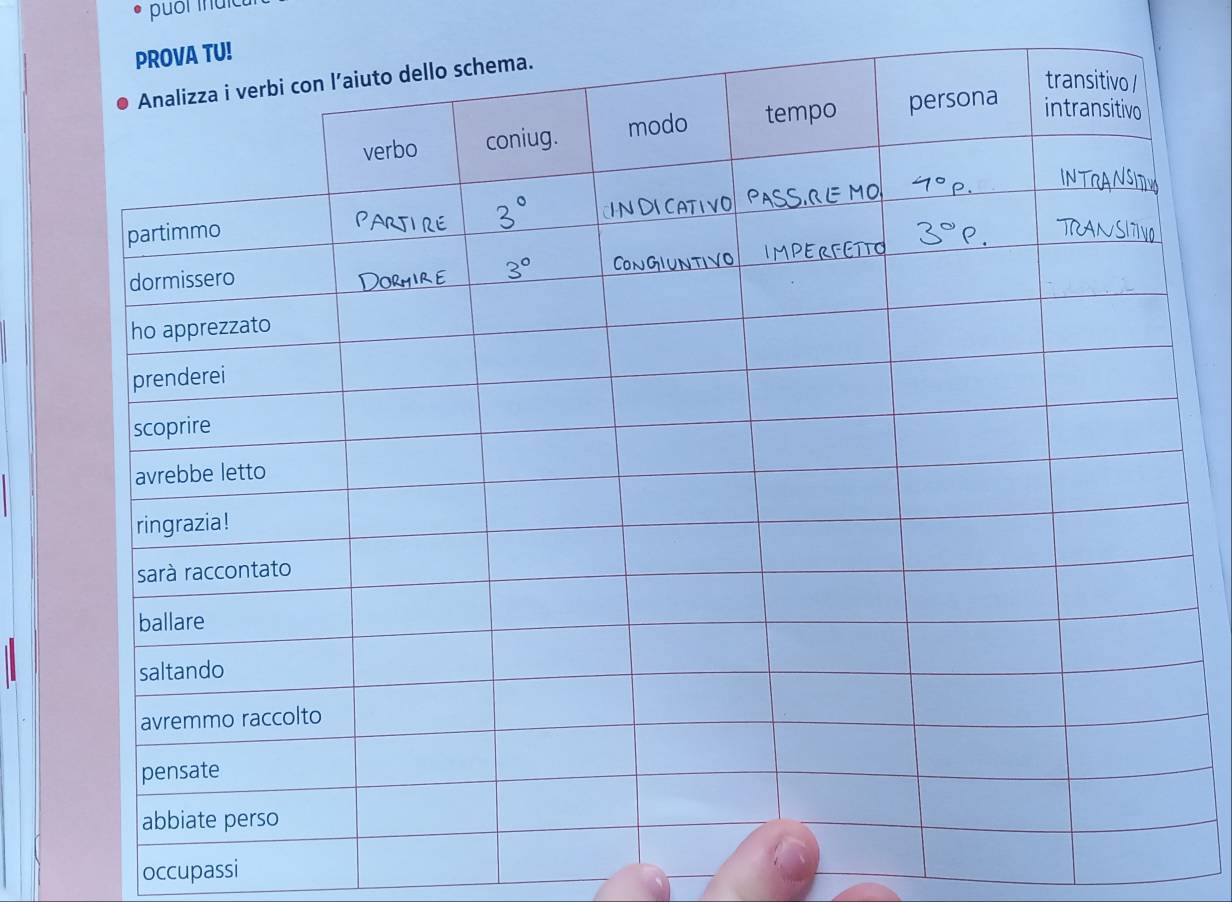 • puoi
PROVA TU!
• Analizza i verbi con l'aiuto dello schema.
verbo coniug. modo tempo persona transitivo / intransitivo
partimmo PARTIRE 3° INDICATIVO PASS.REMO 1° P. INTRANSITIVO
dormissero DORMIRE 3° CONGIUNTIVO IMPERFETTO 3° P. TRANSITIVO
ho apprezzato
prenderei
scoprire
avrebbe letto
ringrazia!
sarà raccontato
ballare
saltando
avremmo raccolto
pensate
abbiate perso
occupassi